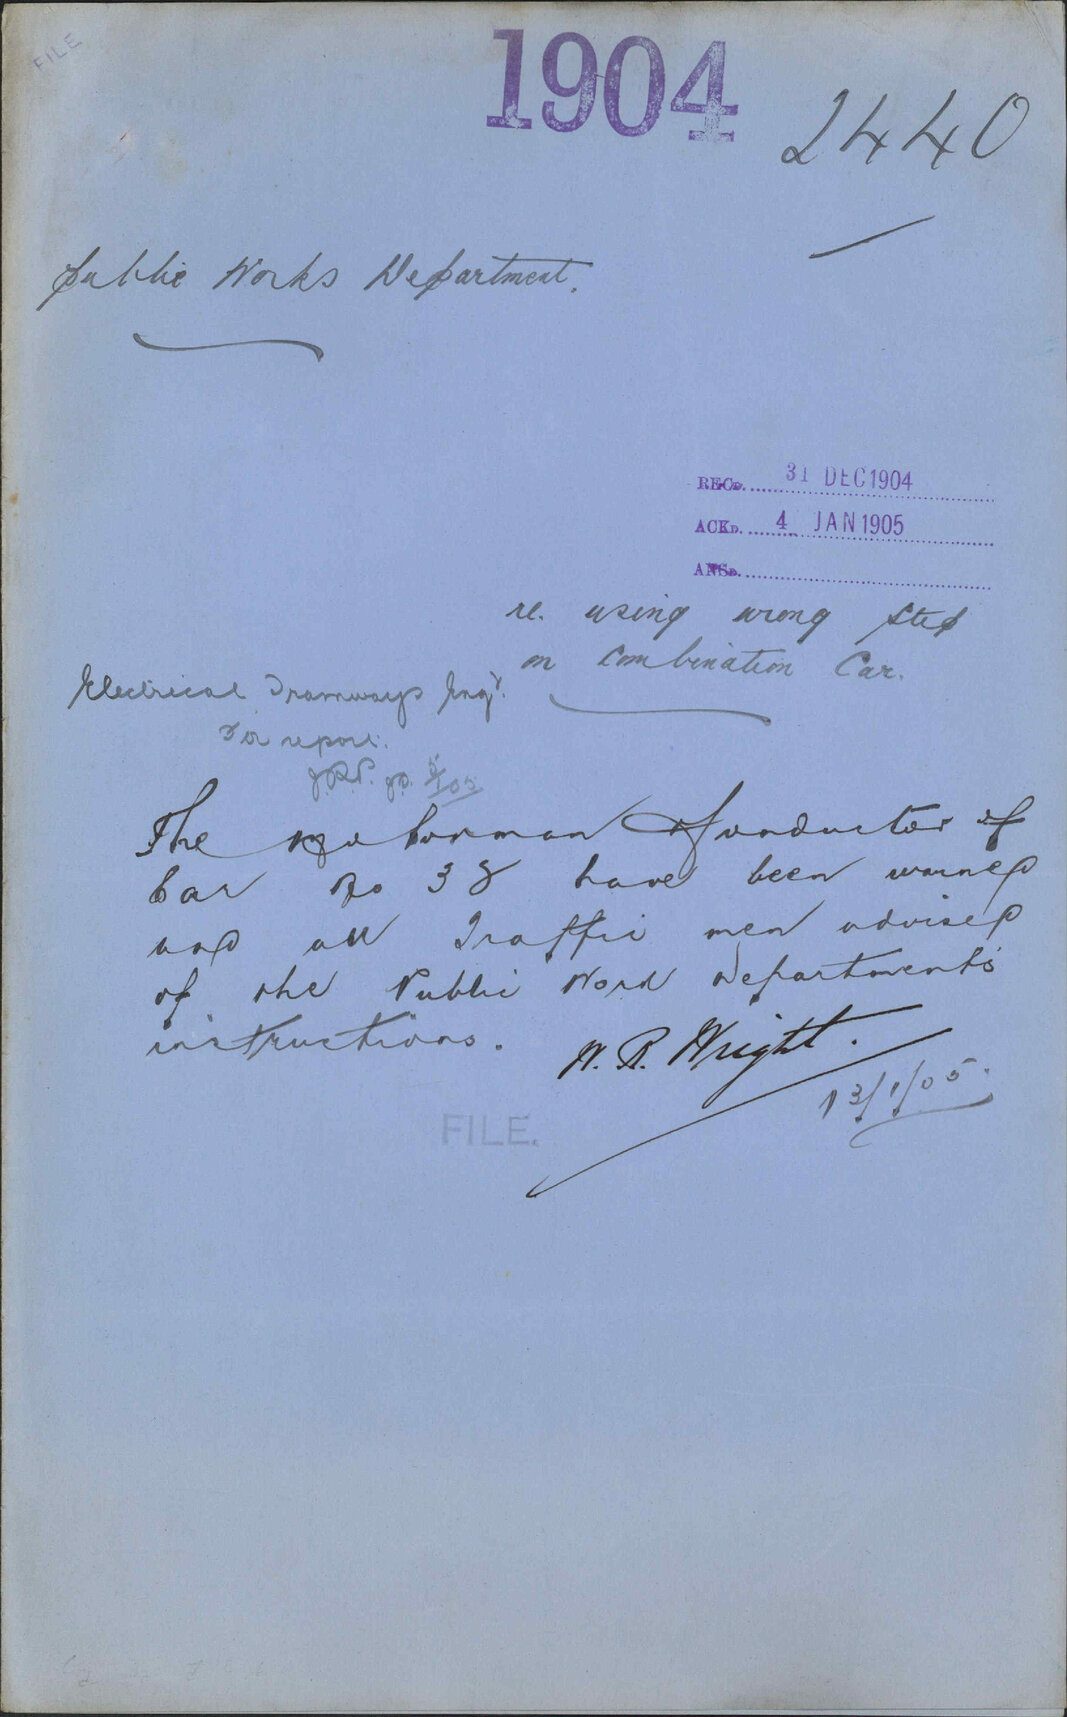 FILE
1904
2440
Public Works Department.
RECD. 31 DEC 1904
ACKD. 4 JAN 1905
ANSD.
re. using wrong step
on Combination Car.
Electrical Tramways Engr.
For report.
The Motorman & Conductor of
Car No 38 have been warned
and all Traffic men advised
of the Public Work Departments
instructions.
W. R. Wright.
13/1/05.
FILE.